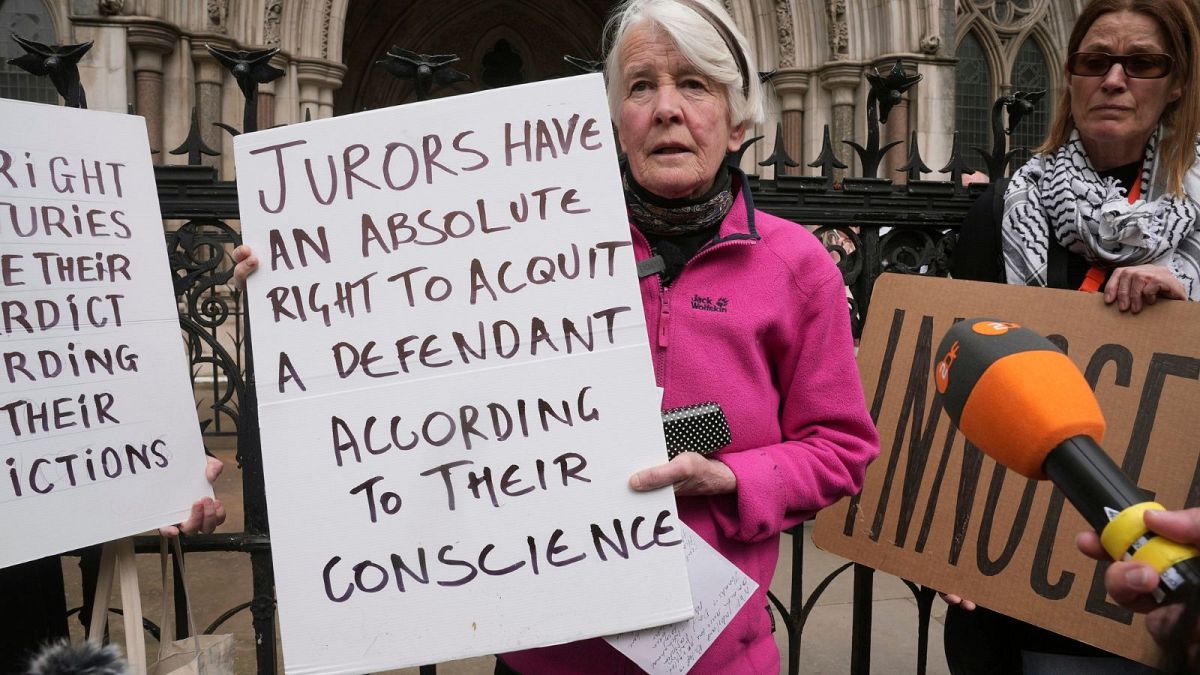 RIGHT
TURIES
E THEIR
RDICT
RDING
THEIR
ICTIONS
JURORS HAVE
AN ABSOLUTE
RIGHT TO ACQUIT
A DEFENDANT
ACCORDING
TO THEIR
CONSCIENCE
Jack
Wolfskin
ZDF
INNOCE